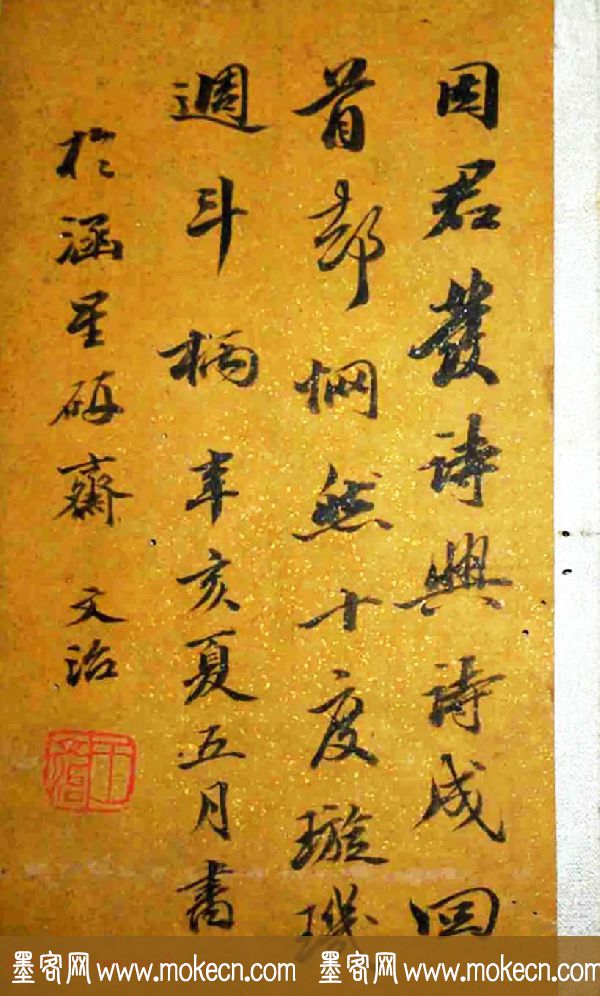 因君發詩興詩成回
首却惘然十度璇璣
週斗柄辛亥夏五月書
於涵星研齋 文治
王文治
墨客网 www.mokecn.com 墨客网 www.mokecn.com